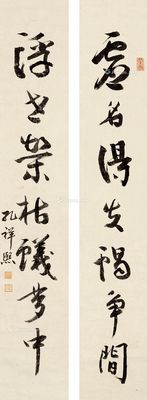 虚名得失蝸角間
浮世榮枯蟻夢中
孔祥熙